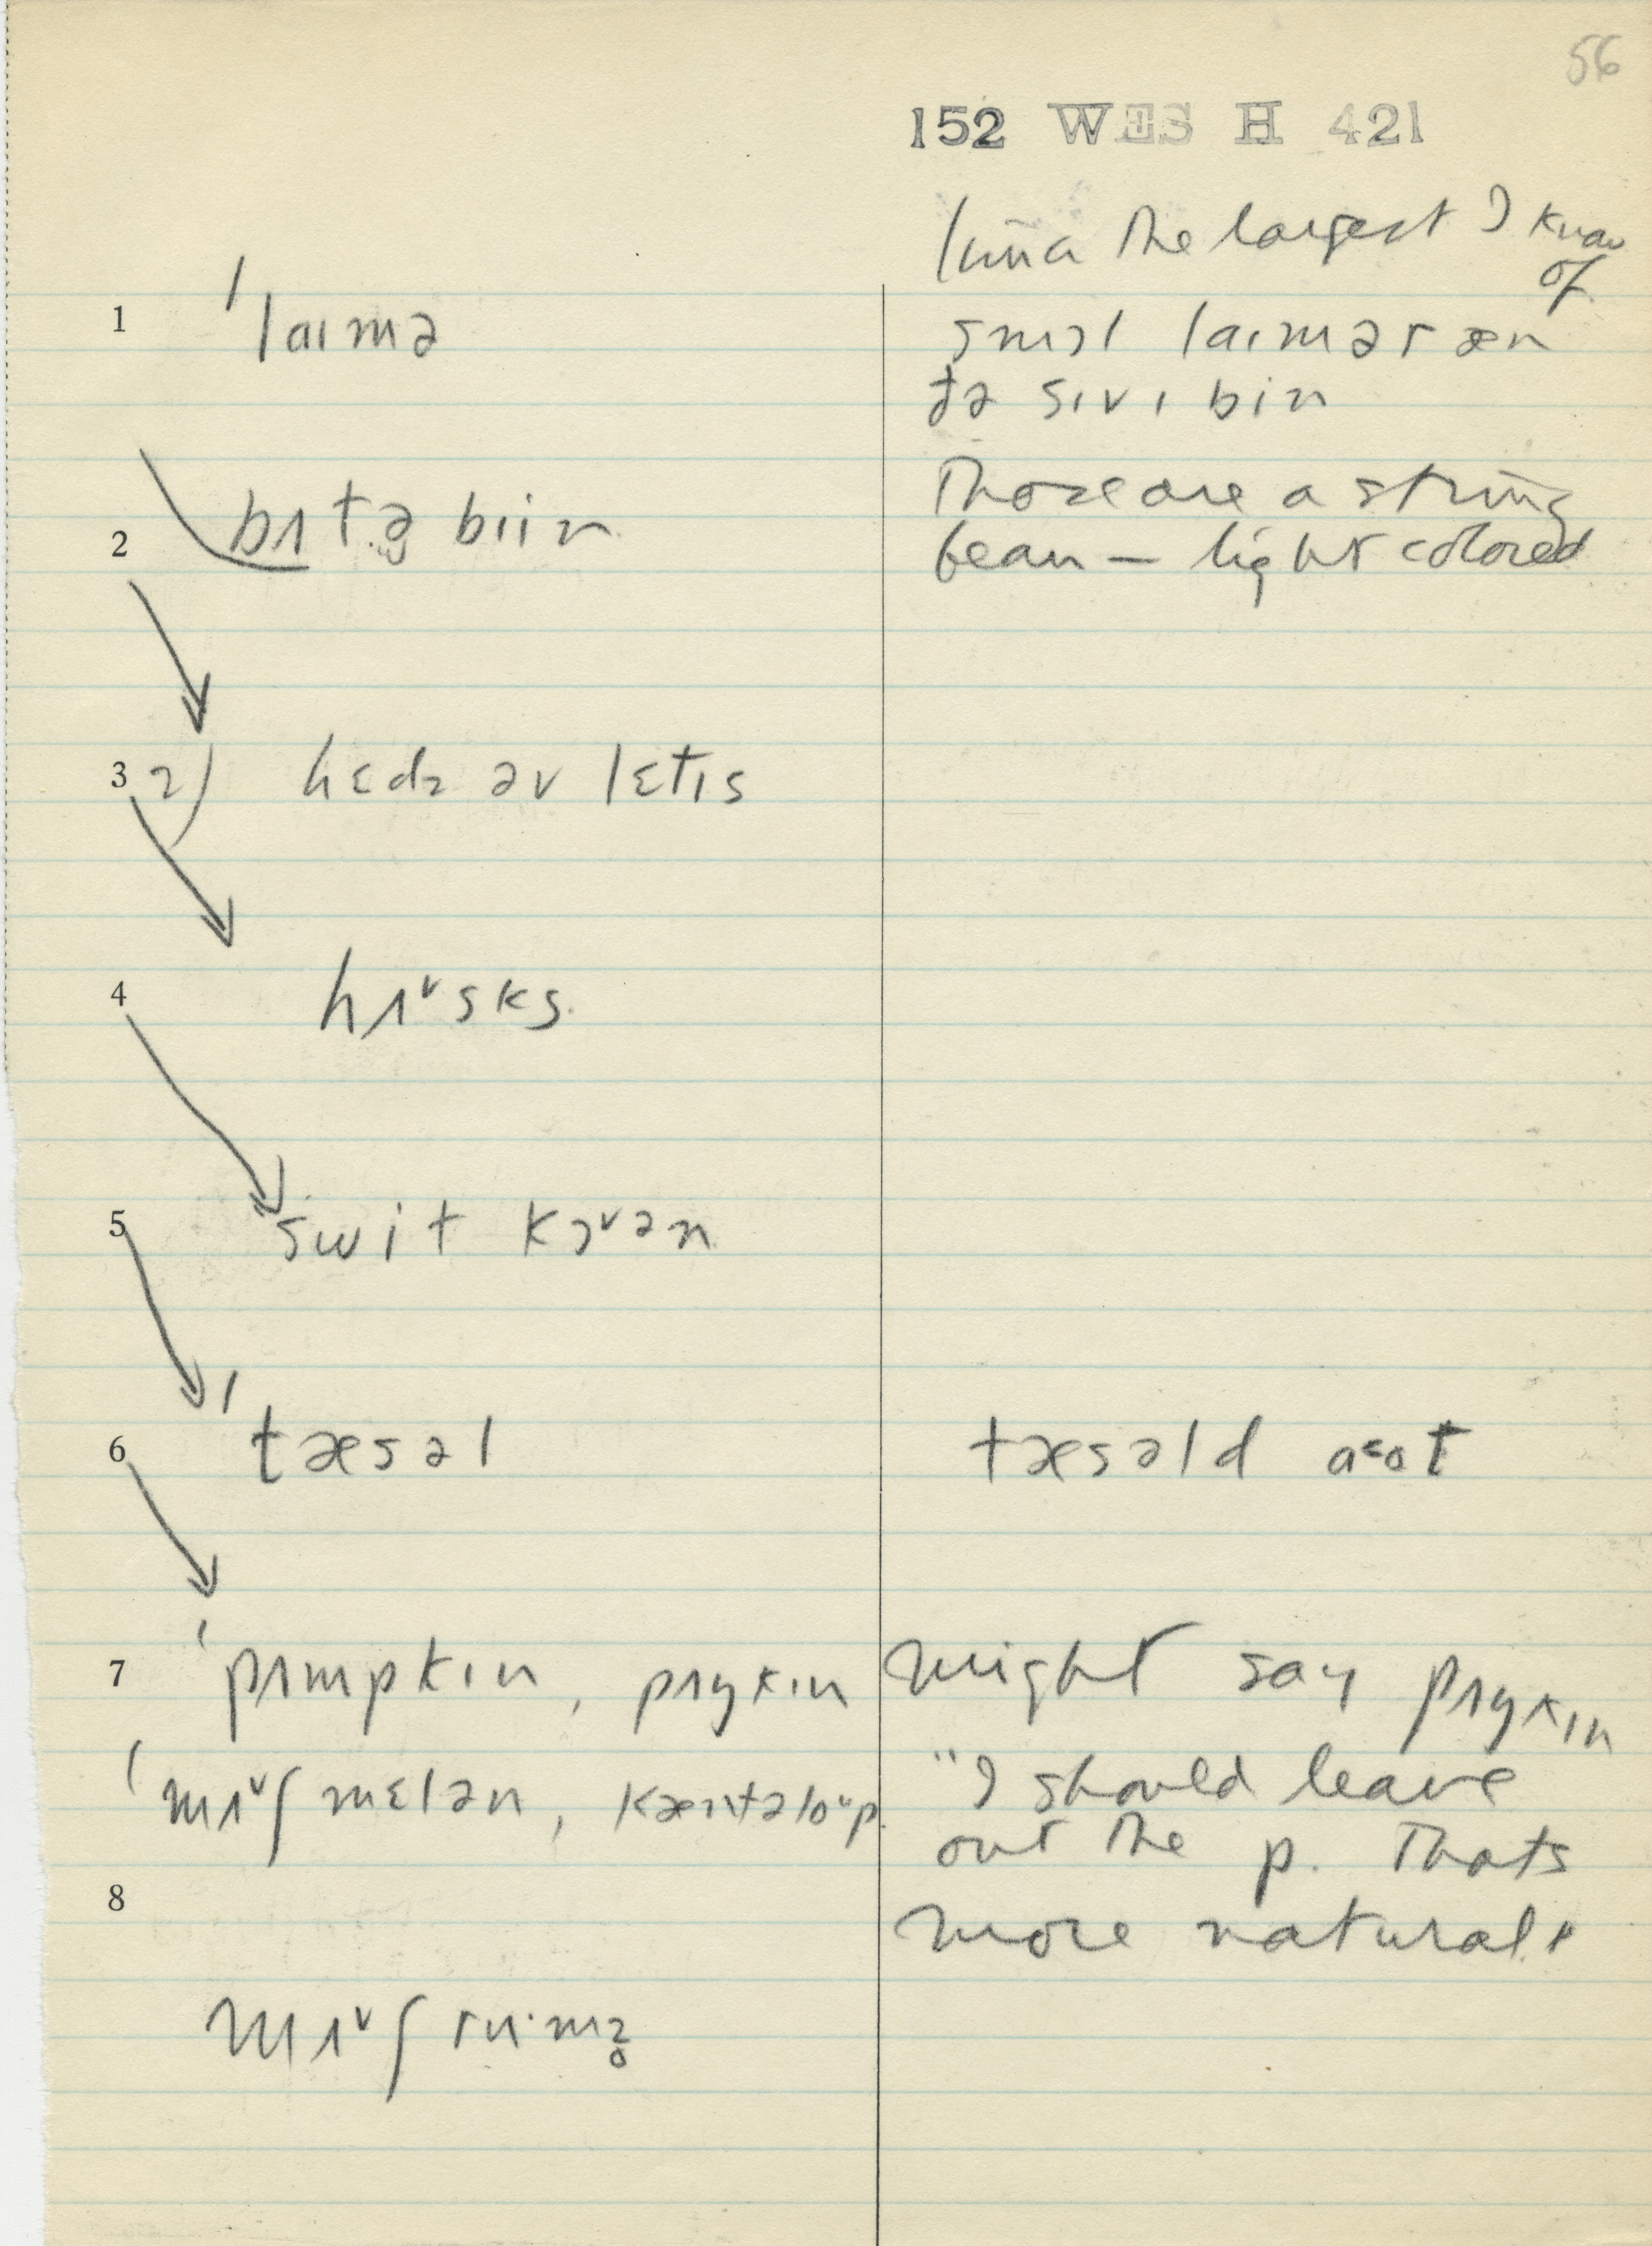 56
152 WES H 421
lima the largest I know
of
1 ˈlaɪmə
smɔl laɪmər æn
ðə sɪvɪ bin
2 bʌtə biin
Those are a string
bean — light colored
3 2) hɛdz əv lɛtɪs
4 hʌ˅sks
5 swit kɔ˅ən
6 ˈtæsəl
tæsəld aᵋot
7 ˈpʌmpkɪn, pʌŋkɪn
might say pʌŋkɪn
ˈmʌ˅ʃmɛlən, kæntəloᵘp
"I should leave
out the p. Thats
8
more natural"
mʌ˅ʃruˑmz̥